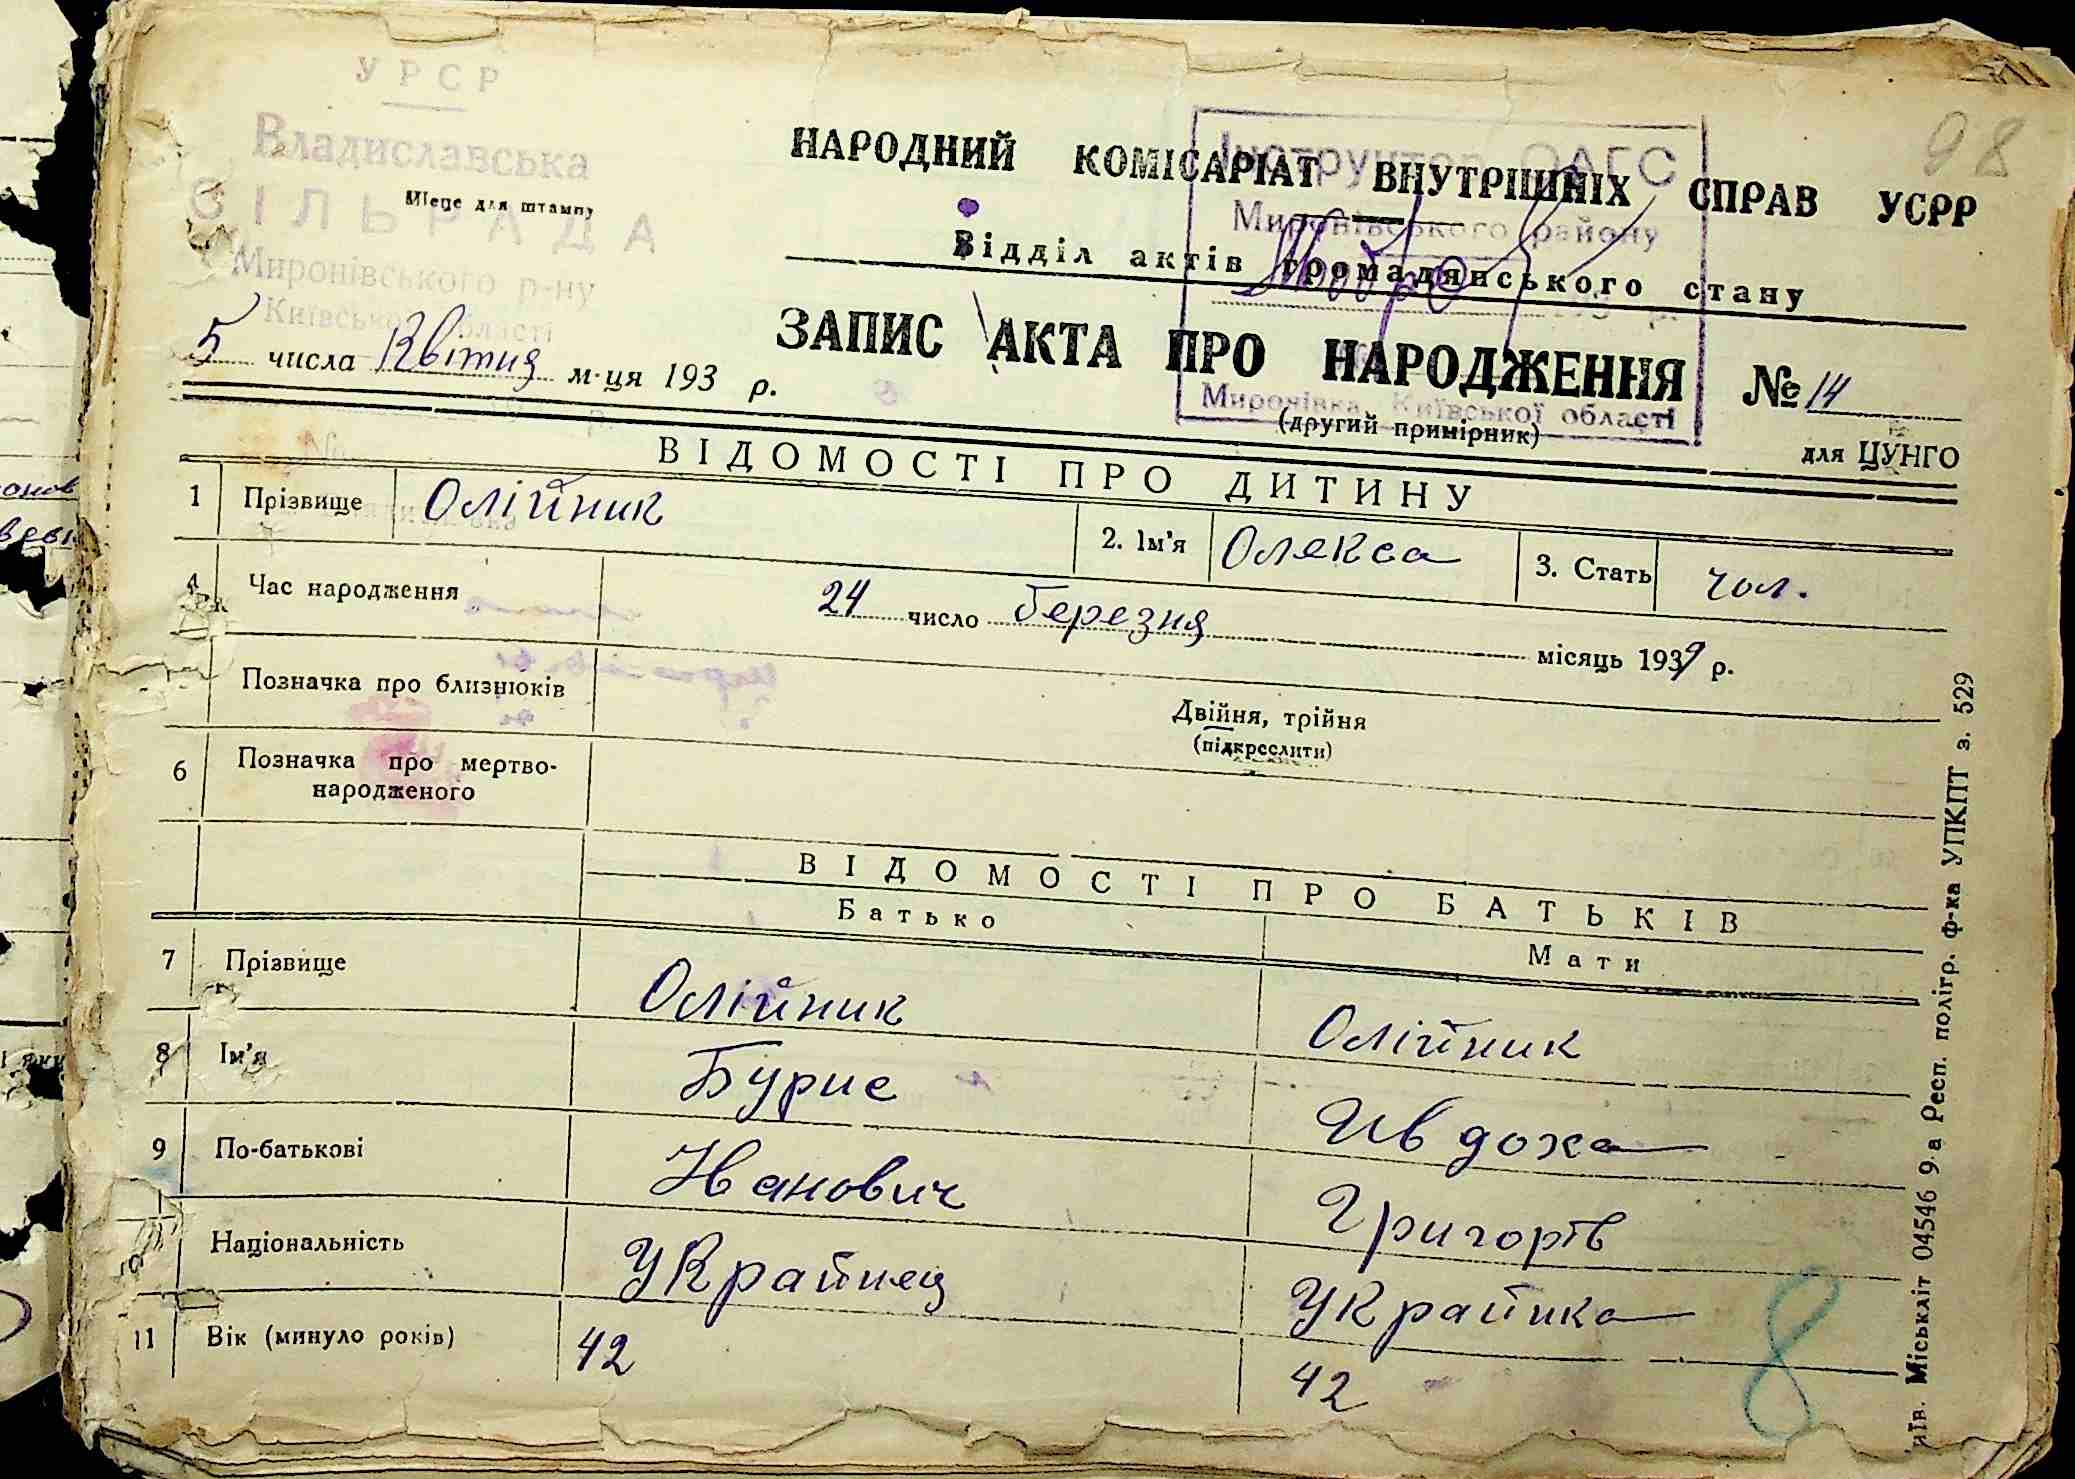 98
УРСР
Владиславська
СІЛЬРАДА
Місце для штампу
Миронівського р-ну
Київської області
НАРОДНИЙ КОМІСАРІАТ ВНУТРІШНІХ СПРАВ УСРР
Відділ актів громадянського стану
Інструктор ОАГС
Миронівського району
Миронівка, Київської області
5 числа Квітня м-ця 193 р.
ЗАПИС АКТА ПРО НАРОДЖЕННЯ № 14
(другий примірник)
для ЦУНГО
ВІДОМОСТІ ПРО ДИТИНУ
1 Прізвище Олійник 2. Ім'я Олекса 3. Стать чол.
4 Час народження 24 число березня місяць 1939 р.
Позначка про близнюків Двійня, трійня
(підкреслити)
6 Позначка про мертво-
народженого
ВІДОМОСТІ ПРО БАТЬКІВ
Батько Мати
7 Прізвище Олійник Олійник
8 Ім'я Бурис Ивдоха
9 По-батькові Иванович Григорів
Національність Украйнец Украйнка
11 Вік (минуло років) 42 42
8
Міськліт 04546 9-а Респ. полігр. ф-ка УПКПТ з. 529